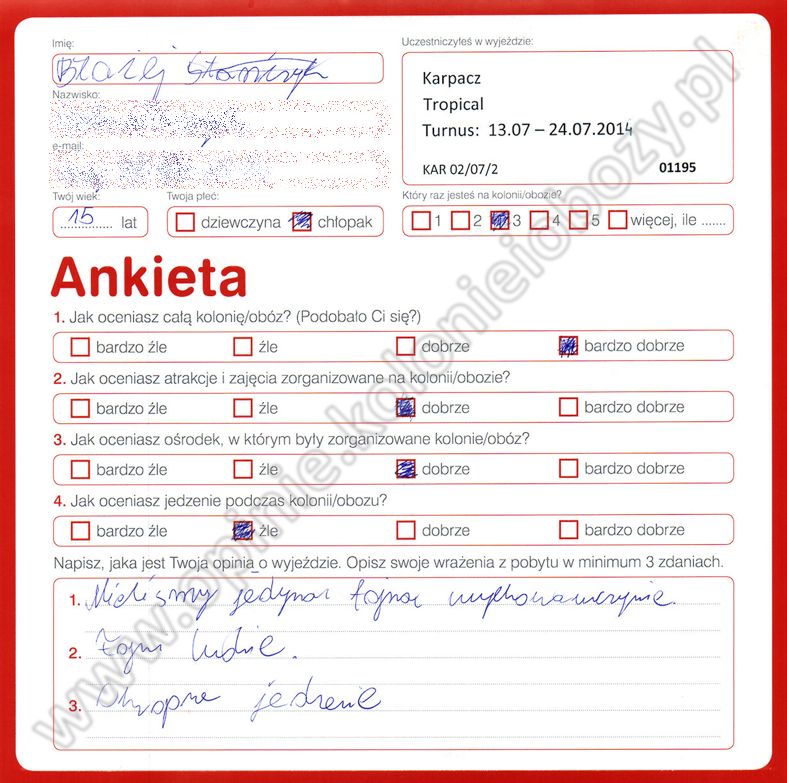 Imię:
Błażej
Nazwisko:
e-mail:
Twój wiek:
15 lat
Twoja płeć:
dziewczyna chłopak
Uczestniczyłeś w wyjeździe:
Karpacz
Tropical
Turnus: 13.07 – 24.07.2014
KAR 02/07/2 01195
Który raz jesteś na kolonii/obozie?
1 2 3 4 5 więcej, ile .......
Ankieta
1. Jak oceniasz całą kolonię/obóz? (Podobało Ci się?)
bardzo źle źle dobrze bardzo dobrze
2. Jak oceniasz atrakcje i zajęcia zorganizowane na kolonii/obozie?
bardzo źle źle dobrze bardzo dobrze
3. Jak oceniasz ośrodek, w którym były zorganizowane kolonie/obóz?
bardzo źle źle dobrze bardzo dobrze
4. Jak oceniasz jedzenie podczas kolonii/obozu?
bardzo źle źle dobrze bardzo dobrze
Napisz, jaka jest Twoja opinia o wyjeździe. Opisz swoje wrażenia z pobytu w minimum 3 zdaniach.
1. Mieliśmy fajną
2. Fajni ludzie.
3. Okropne jedzenie
www.opinie.kolonieiobozy.pl